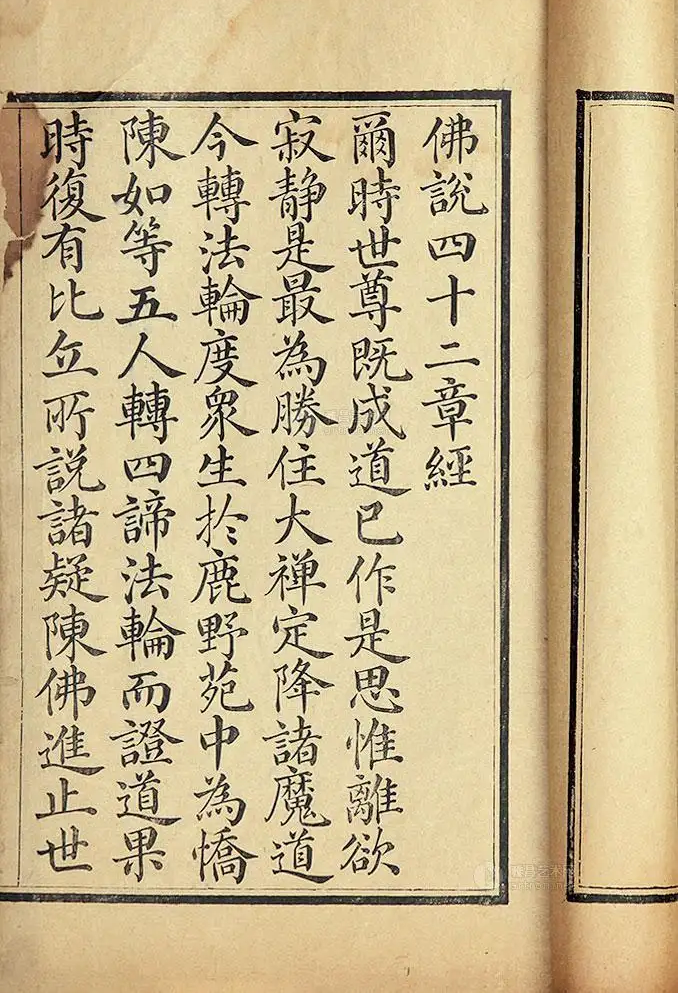 佛說四十二章經
爾時世尊既成道已作是思惟離欲
寂靜是最為勝住大禪定降諸魔道
今轉法輪度衆生於鹿野苑中為憍
陳如等五人轉四諦法輪而證道果
時復有比丘所說諸疑陳佛進止世